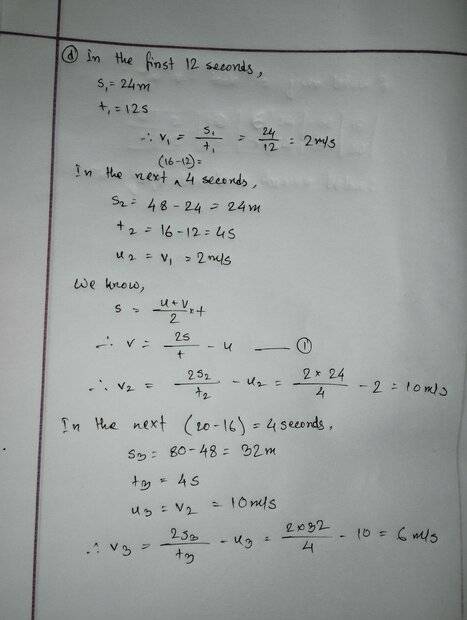 ⓓ In the first 12 seconds,
S₁ = 24m
t₁ = 12s
∴ v₁ = S₁/t₁ = 24/12 = 2m/s
(16-12)=
In the next ^ 4 seconds,
S₂ = 48 - 24 = 24m
t₂ = 16 - 12 = 4s
u₂ = v₁ = 2m/s
We know,
s = (u+v)/2 × t
∴ v = 2s/t - u —— ①
∴ v₂ = 2S₂/t₂ - u₂ = (2 × 24)/4 - 2 = 10m/s
In the next (20-16) = 4 seconds,
S₃ = 80 - 48 = 32m
t₃ = 4s
u₃ = v₂ = 10m/s
∴ v₃ = 2S₃/t₃ - u₃ = (2×32)/4 - 10 = 6 m/s